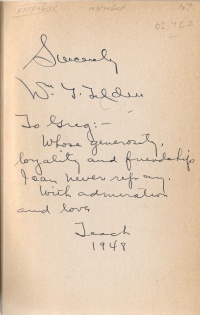 Sincerely
Wm. T. Tilden
To Greg:-
Whose generosity,
loyalty and friendship
I can never repay.
With admiration
and love
Teach
1948